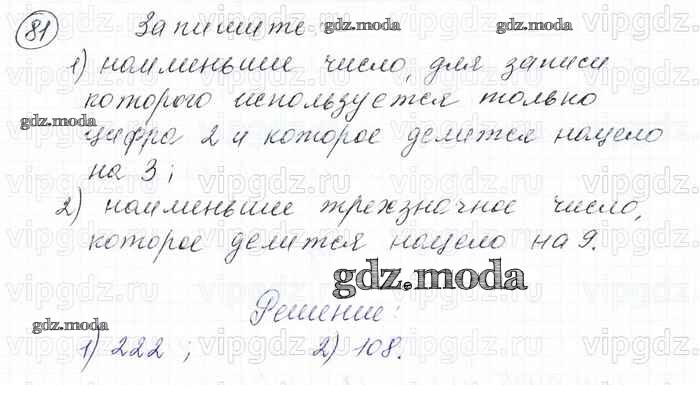 81 Запишите:
gdz.moda gdz.moda gdz.moda
1) наименьшие число, для записи
которого используется только
gdz.moda
цифра 2 и которое делится нацело
на 3;
2) наименьшие трехзначное число,
которое делится нацело на 9.
gdz.moda
Решение:
gdz.moda
1) 222 ; 2) 108.
vipgdz.ru